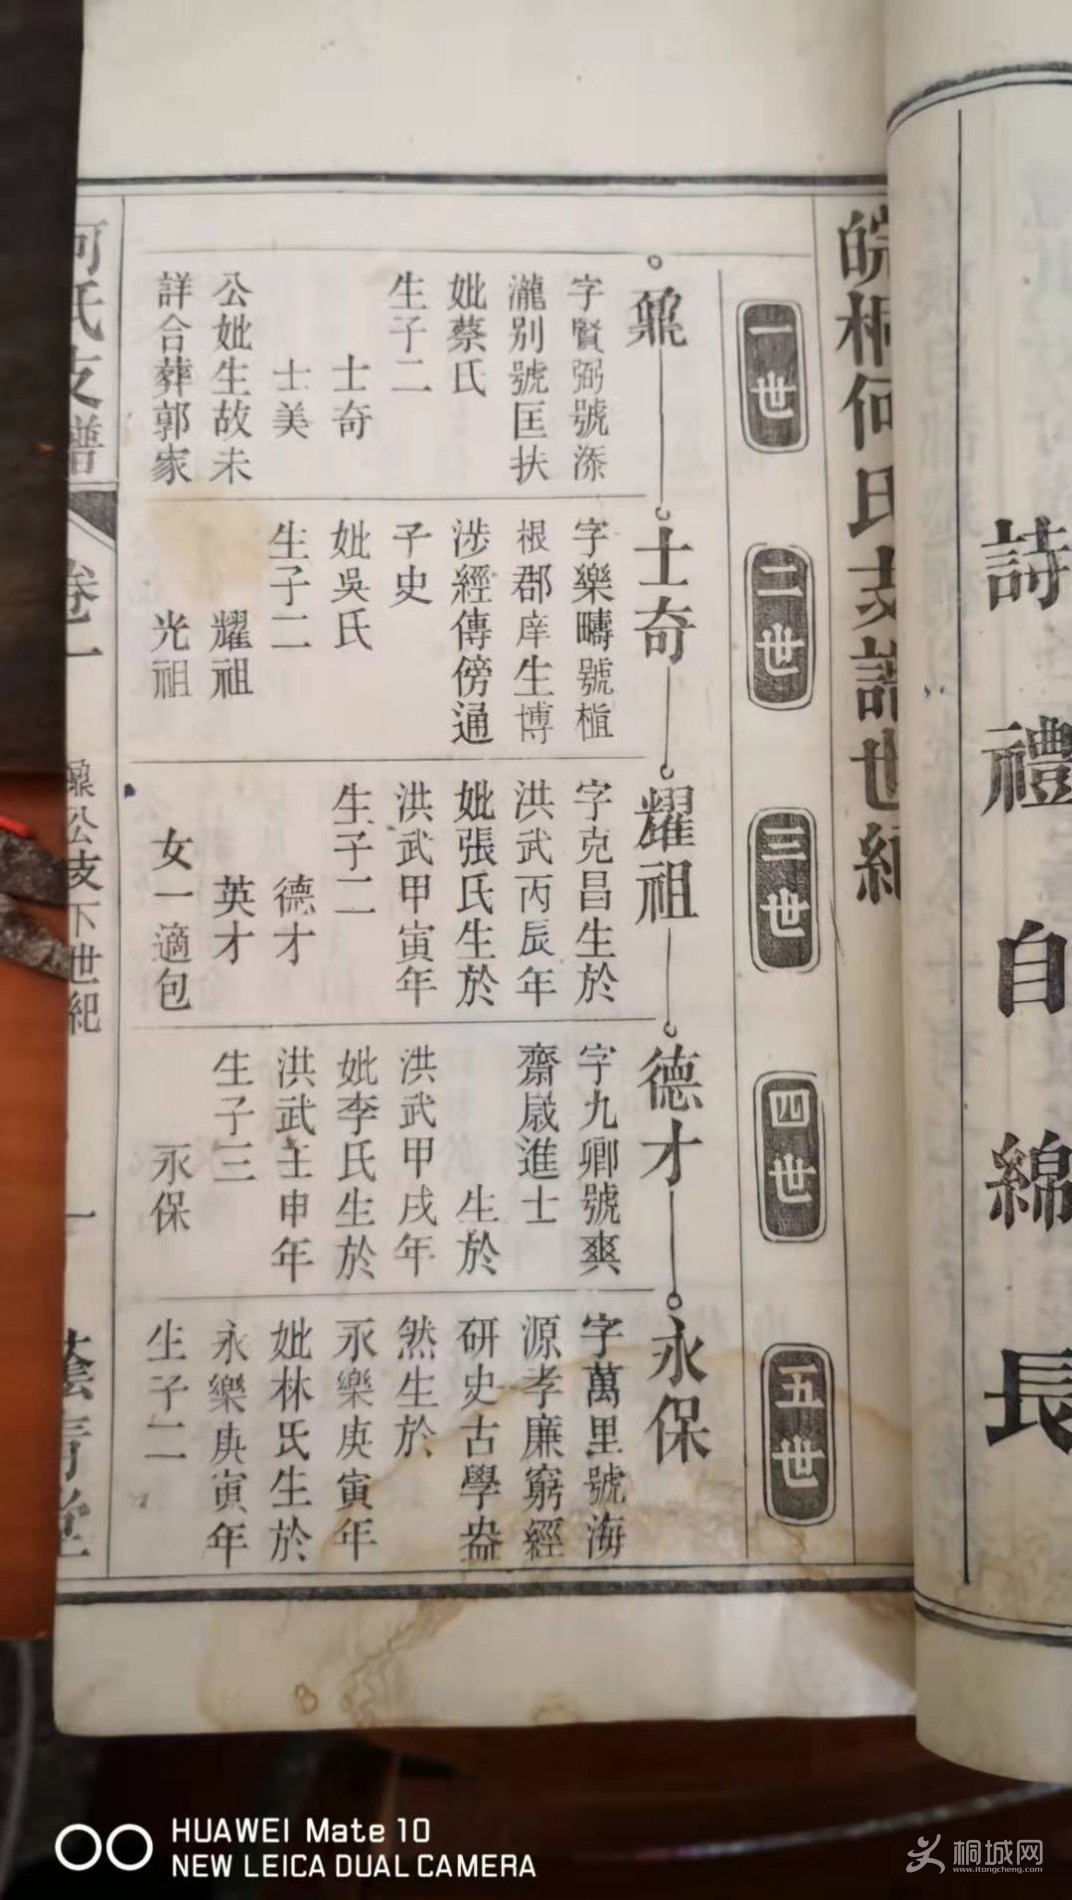 詩禮自綿長
皖桐何氏支譜世紀
一世
二世
三世
四世
五世
鼐
字賢弼號添
瀧别號匡扶
妣蔡氏
生子二
士奇
士美
公妣生故未
詳合葬郭家
士奇
字樂疇號植
根郡庠生博
涉經傳傍通
子史
妣吳氏
生子二
耀祖
光祖
耀祖
字克昌生於
洪武丙辰年
妣張氏生於
洪武甲寅年
生子二
德才
英才
女一適包
德才
字九卿號爽
齋歲進士
生於
洪武甲戌年
妣李氏生於
洪武壬申年
生子三
永保
永保
字萬里號海
源孝廉窮經
研史古學盎
然生於
永樂庚寅年
妣林氏生於
永樂庚寅年
生子二
何氏支譜
卷一
公支下世紀
一
HUAWEI Mate 10
NEW LEICA DUAL CAMERA
桐城网
www.itongcheng.com